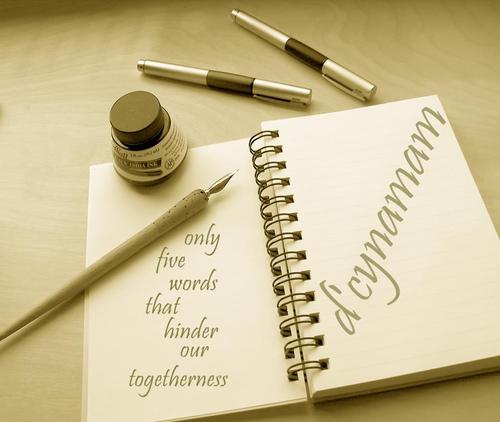 only
five
words
that
hinder
our
togetherness
d'cynamam
INDIA INK